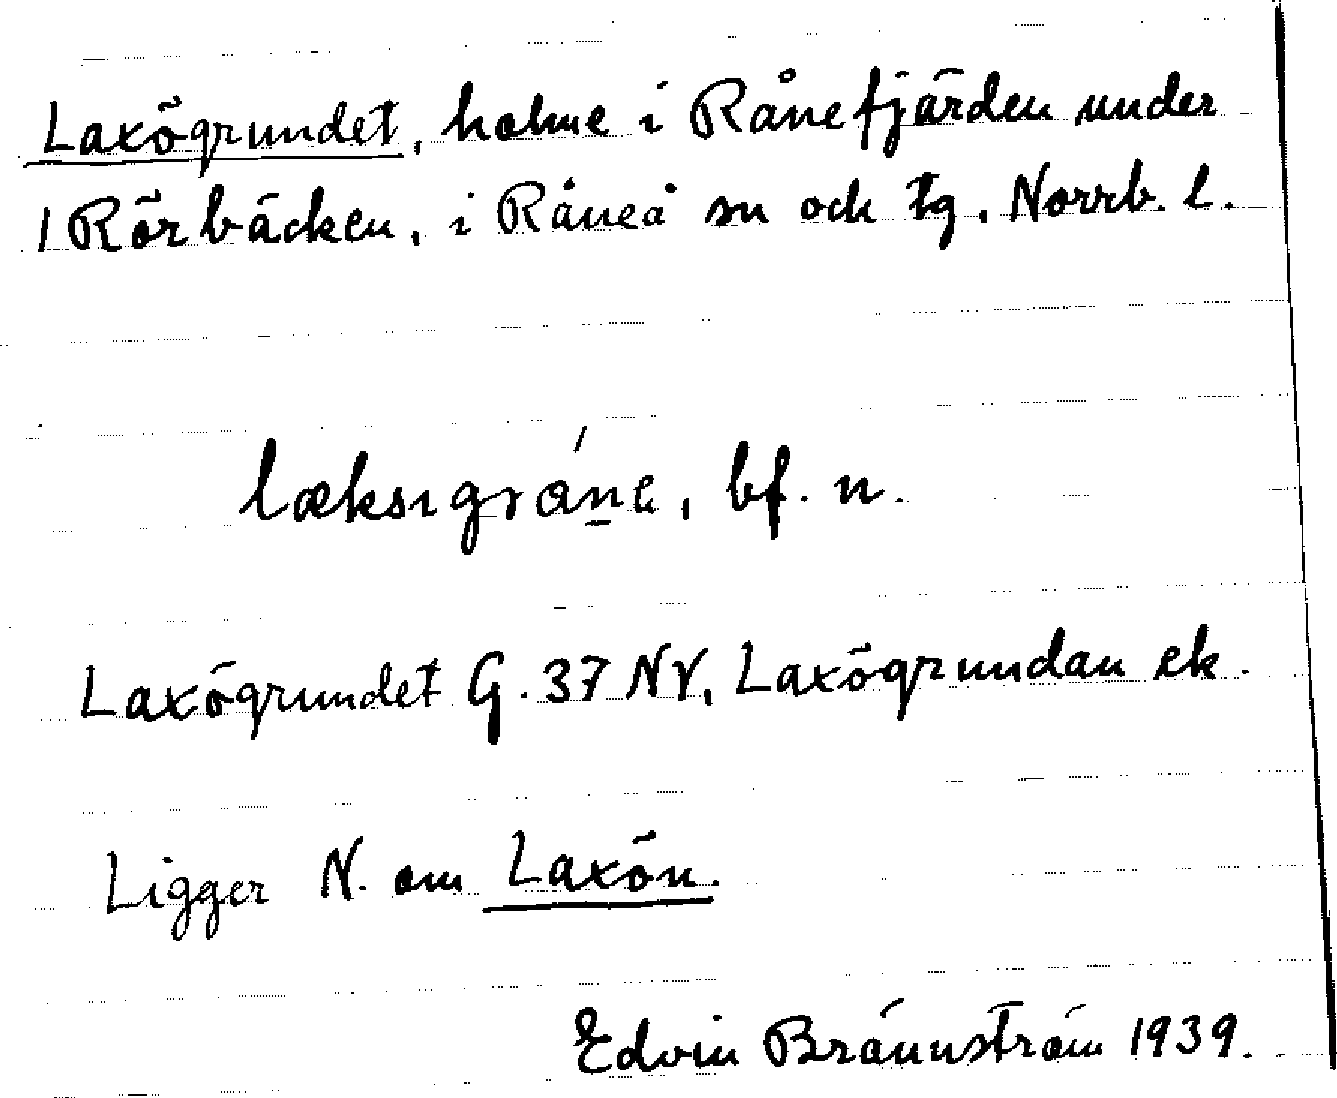 Laxögrundet, holme i Rånefjärden under
/Rörbäcken, i Råneå sn och tg. Norrb. l.
læksıgrǿṉe, bf. n.
Laxögrundet G. 37 NV, Laxögrundan ek.
Ligger N. om Laxön.
Edvin Brännström 1939.